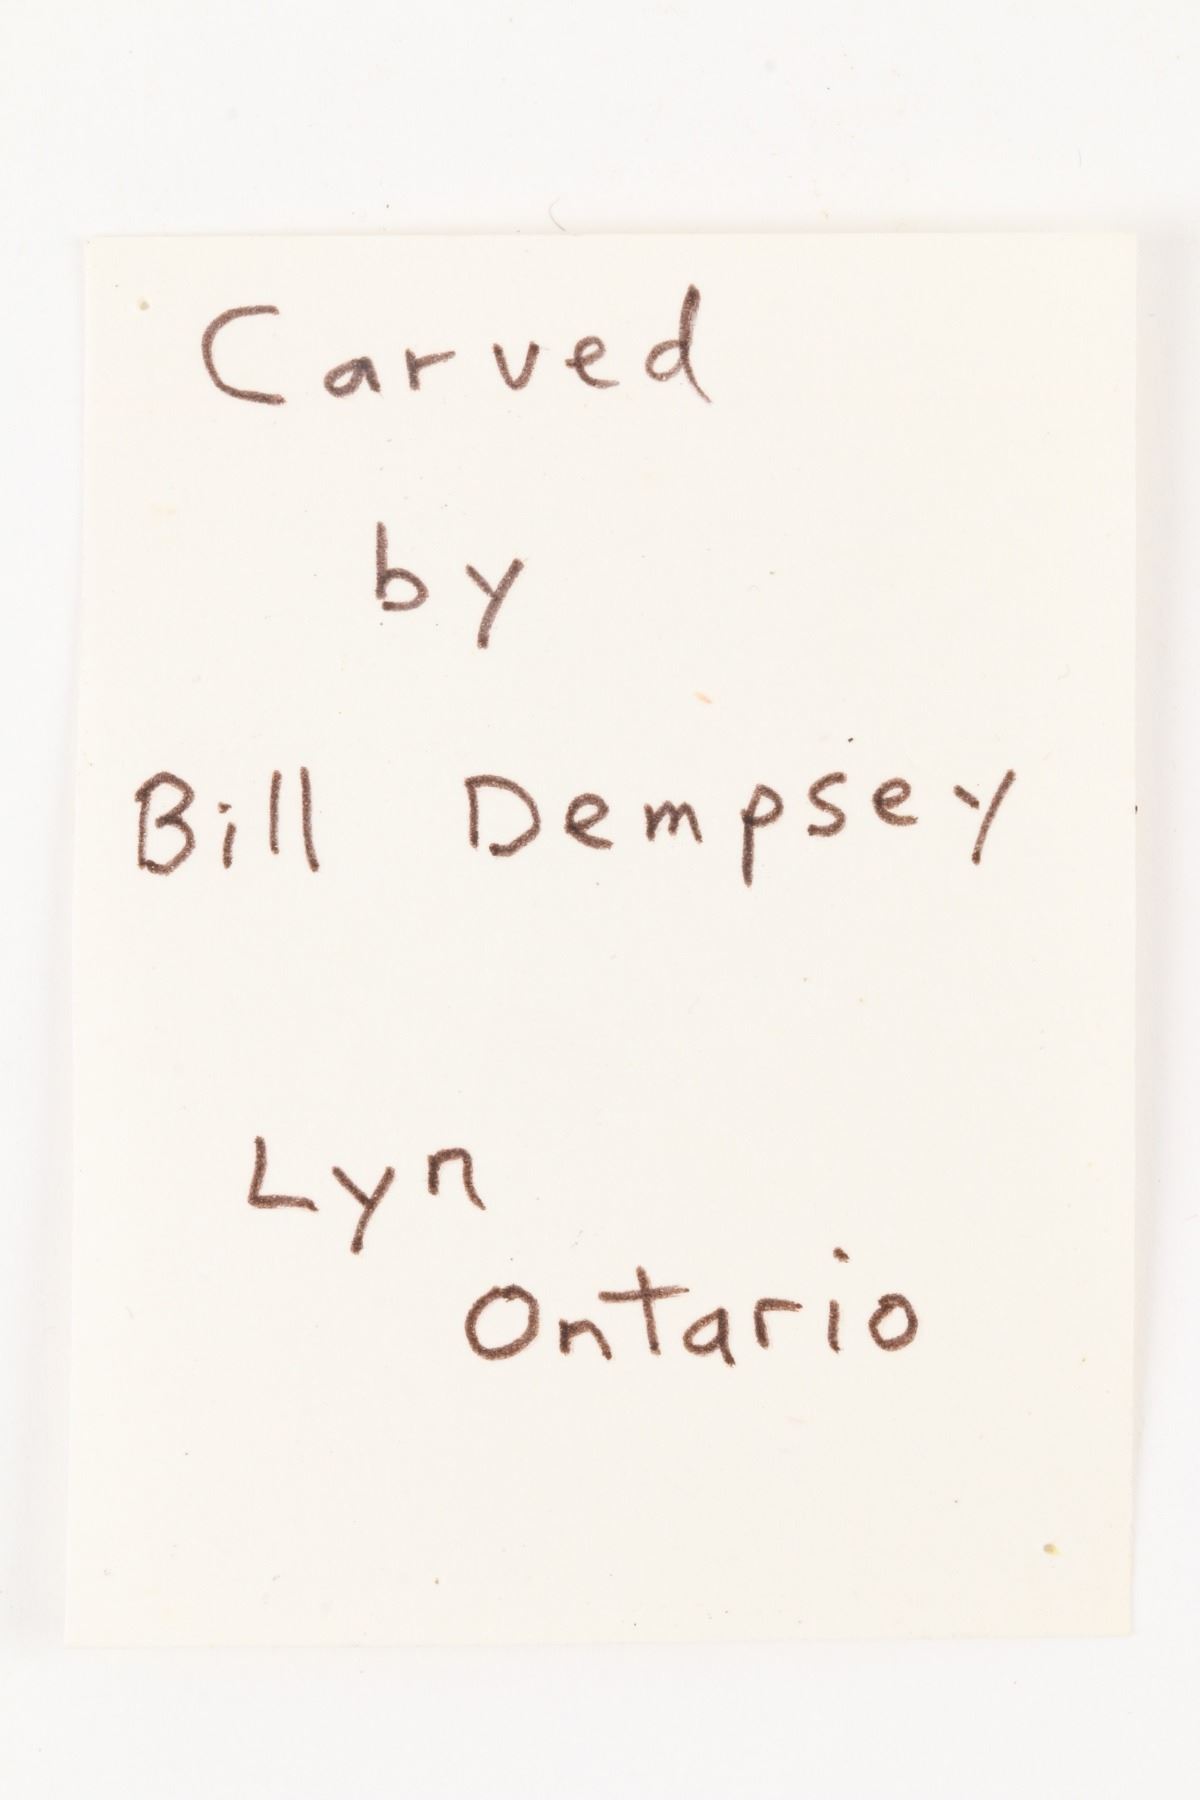 Carved
by
Bill Dempsey
Lyn
Ontario